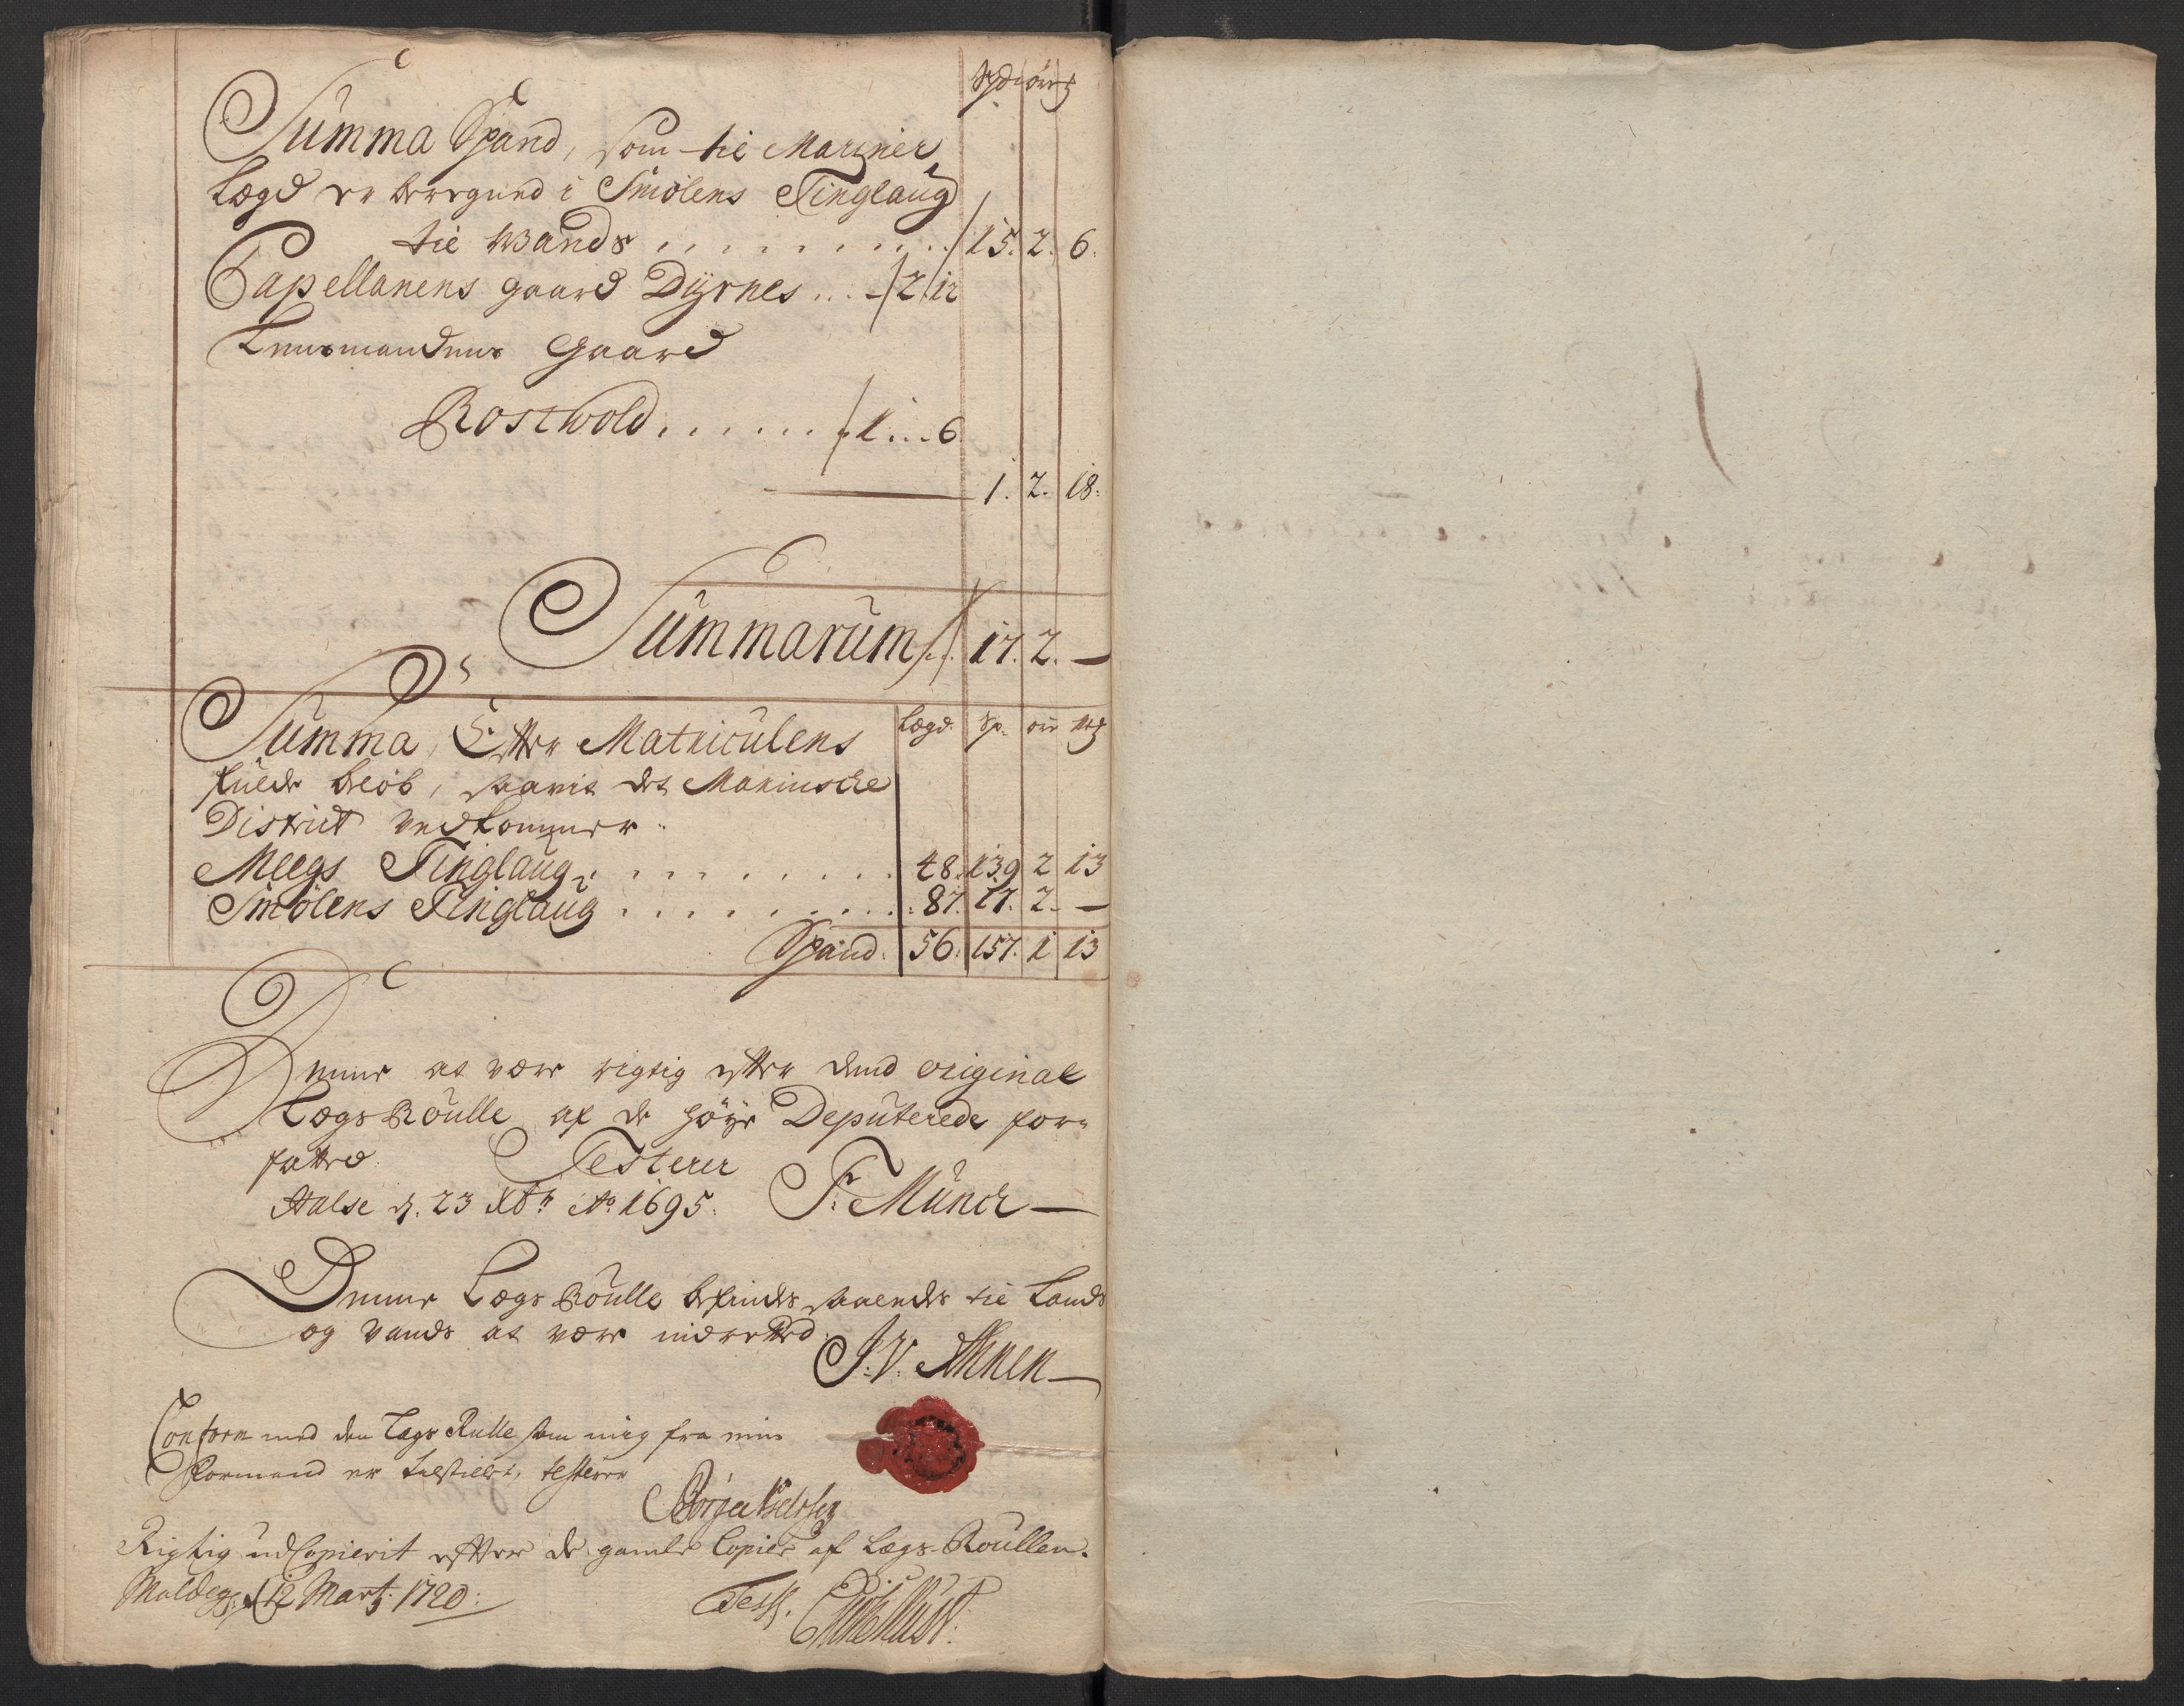 Spd ør mg
Summa Spand, som til Mariner
Lægd er beregned i Smølens Tinglaug
til Wands . . . . . . . . . 15. 2. 6.
Capellanens gaard Dÿrnes . . . - 2 12
Lensmandens Gaard
Rostwold . . . . . . - 1 . . . 6
1. 2. 18.
Summarum . . 17. 2. —
Lægd. Sp. ør mg
Summa, Efter Matriculens
fulde beløb, saavit det Marinsche
District vedkommer.
Meegs Tinglaug . . . . . . . . . 48. 139 2 13
Smølens Tinglaug . . . . . . . . . 8. 17. 2. —
Spand. 56. 157. 1 13
Denne at være rigtig efter dend original
Lægs Roulle af de høye Deputerede for-
fatted. Testerer
Halse d. 23 Xbr Ao. 1695. F: Münch —
Denne Lægs Roulle befindes saavelsom til Lands
og Vands at være indretted
J. V. Ahnen —
Conform med den Lægs Rulle som mig fra min
Formand er tilstillet, testerer
Rigtig udCopierit efter de gamle Copier af Lægs-Roullen.
Molde d. 12 Martj. 1720.
Test.